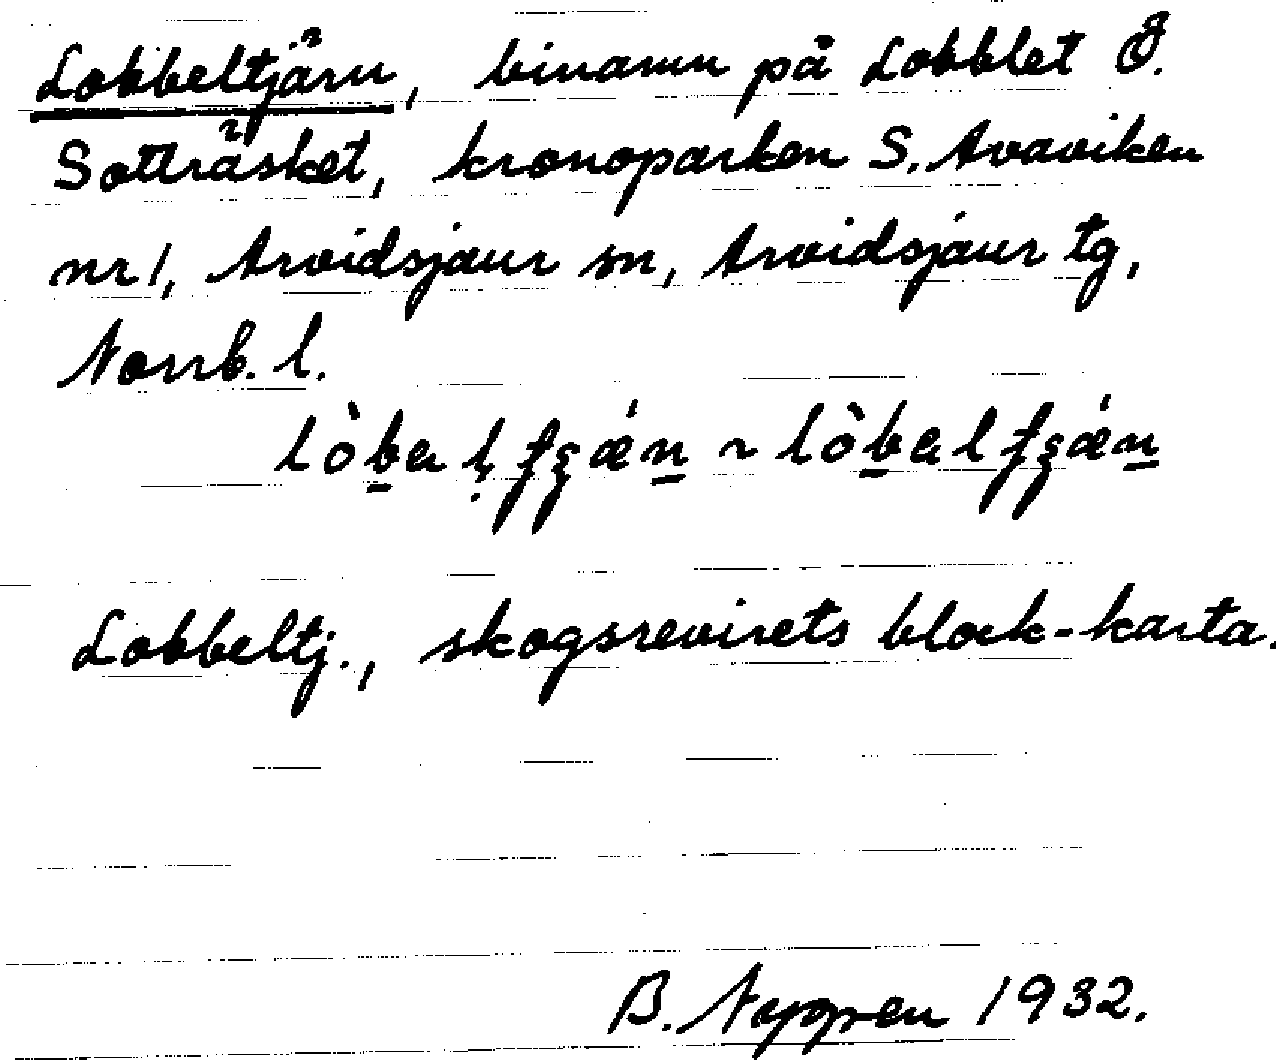 Lobbeltjärn, binamn på Lobblet Ö.
Sotträsket, kronoparken S. Avaviken
nr 1, Arvidsjaur sn, Arvidsjaur tg,
Norrb. l.
Lobbeltj., skogsrevirets block-karta.
B. Nygren 1932.